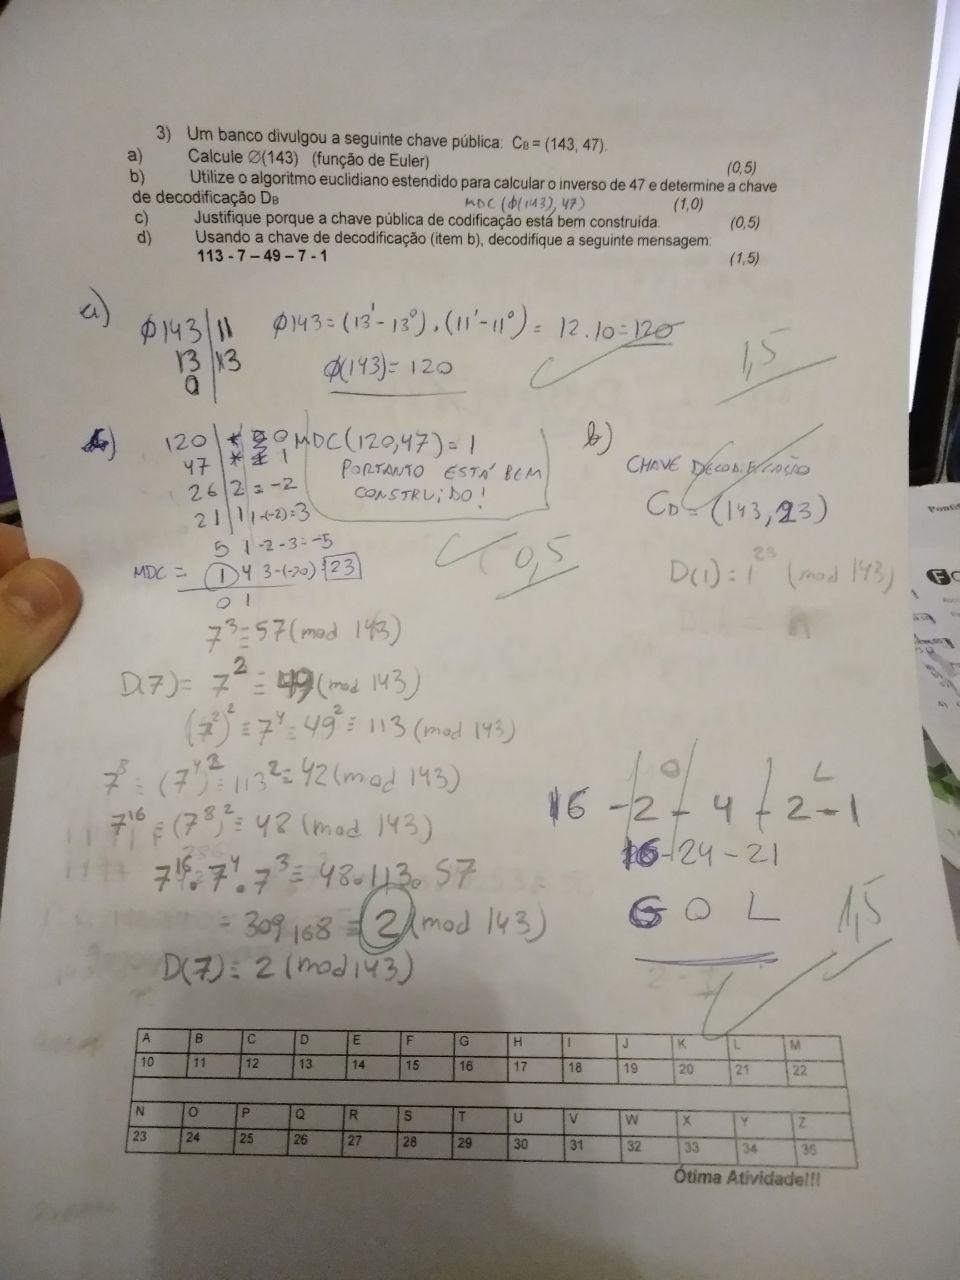 3) Um banco divulgou a seguinte chave pública: CB = (143, 47).
a) Calcule Ø(143) (função de Euler) (0,5)
b) Utilize o algoritmo euclidiano estendido para calcular o inverso de 47 e determine a chave
de decodificação DB (1,0)
MDC (ϕ(143), 47)
c) Justifique porque a chave pública de codificação está bem construída. (0,5)
d) Usando a chave de decodificação (item b), decodifique a seguinte mensagem:
113 - 7 – 49 – 7 - 1 (1,5)
a)
ϕ143 | 11
13 | 13
0
ϕ143 = (13¹ - 13⁰) . (11¹ - 11⁰) = 12 . 10 = 120
ϕ(143) = 120
1,5
120 | 0
47 | 1
26 | 2 = -2
21 | 1 1-(-2) = 3
5 1 -2-3 = -5
MDC = 1 4 3-(-20) 23
0 1
MDC(120,47) = 1
PORTANTO ESTÁ BEM
CONSTRUIDO!
0,5
b)
CHAVE DECODIFICAÇÃO
CD = (143, 23)
D(1) = 1²³ (mod 143)
7³ ≡ 57 (mod 143)
D(7) = 7² ≡ 49 (mod 143)
(7²)² ≡ 7⁴ = 49² ≡ 113 (mod 143)
7⁸ = (7⁴)² = 113² ≡ 42 (mod 143)
7¹⁶ = (7⁸)² ≡ 48 (mod 143)
7¹⁶ . 7⁴ . 7³ ≡ 48 . 113 . 57
= 309168 ≡ 2 (mod 143)
D(7) = 2 (mod 143)
O L
16 - 2 - 4 - 2 - 1
16 - 24 - 21
G O L
1,5
A B C D E F G H I J K L M
10 11 12 13 14 15 16 17 18 19 20 21 22
N O P Q R S T U V W X Y Z
23 24 25 26 27 28 29 30 31 32 33 34 35
Ótima Atividade!!!